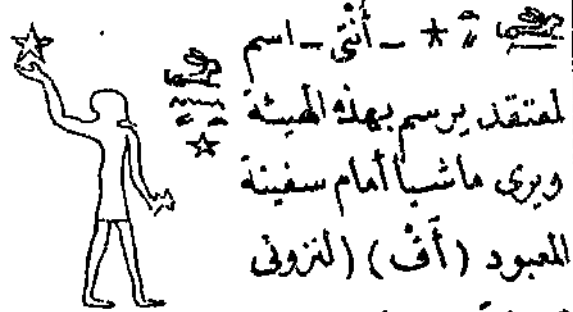 _ أُنْتِى _ اسم
لمعتقد يرسم بهذه الهيئة
ويرى ماشيا أمام سفينة
المعبود (أَفْ) (لنزونى